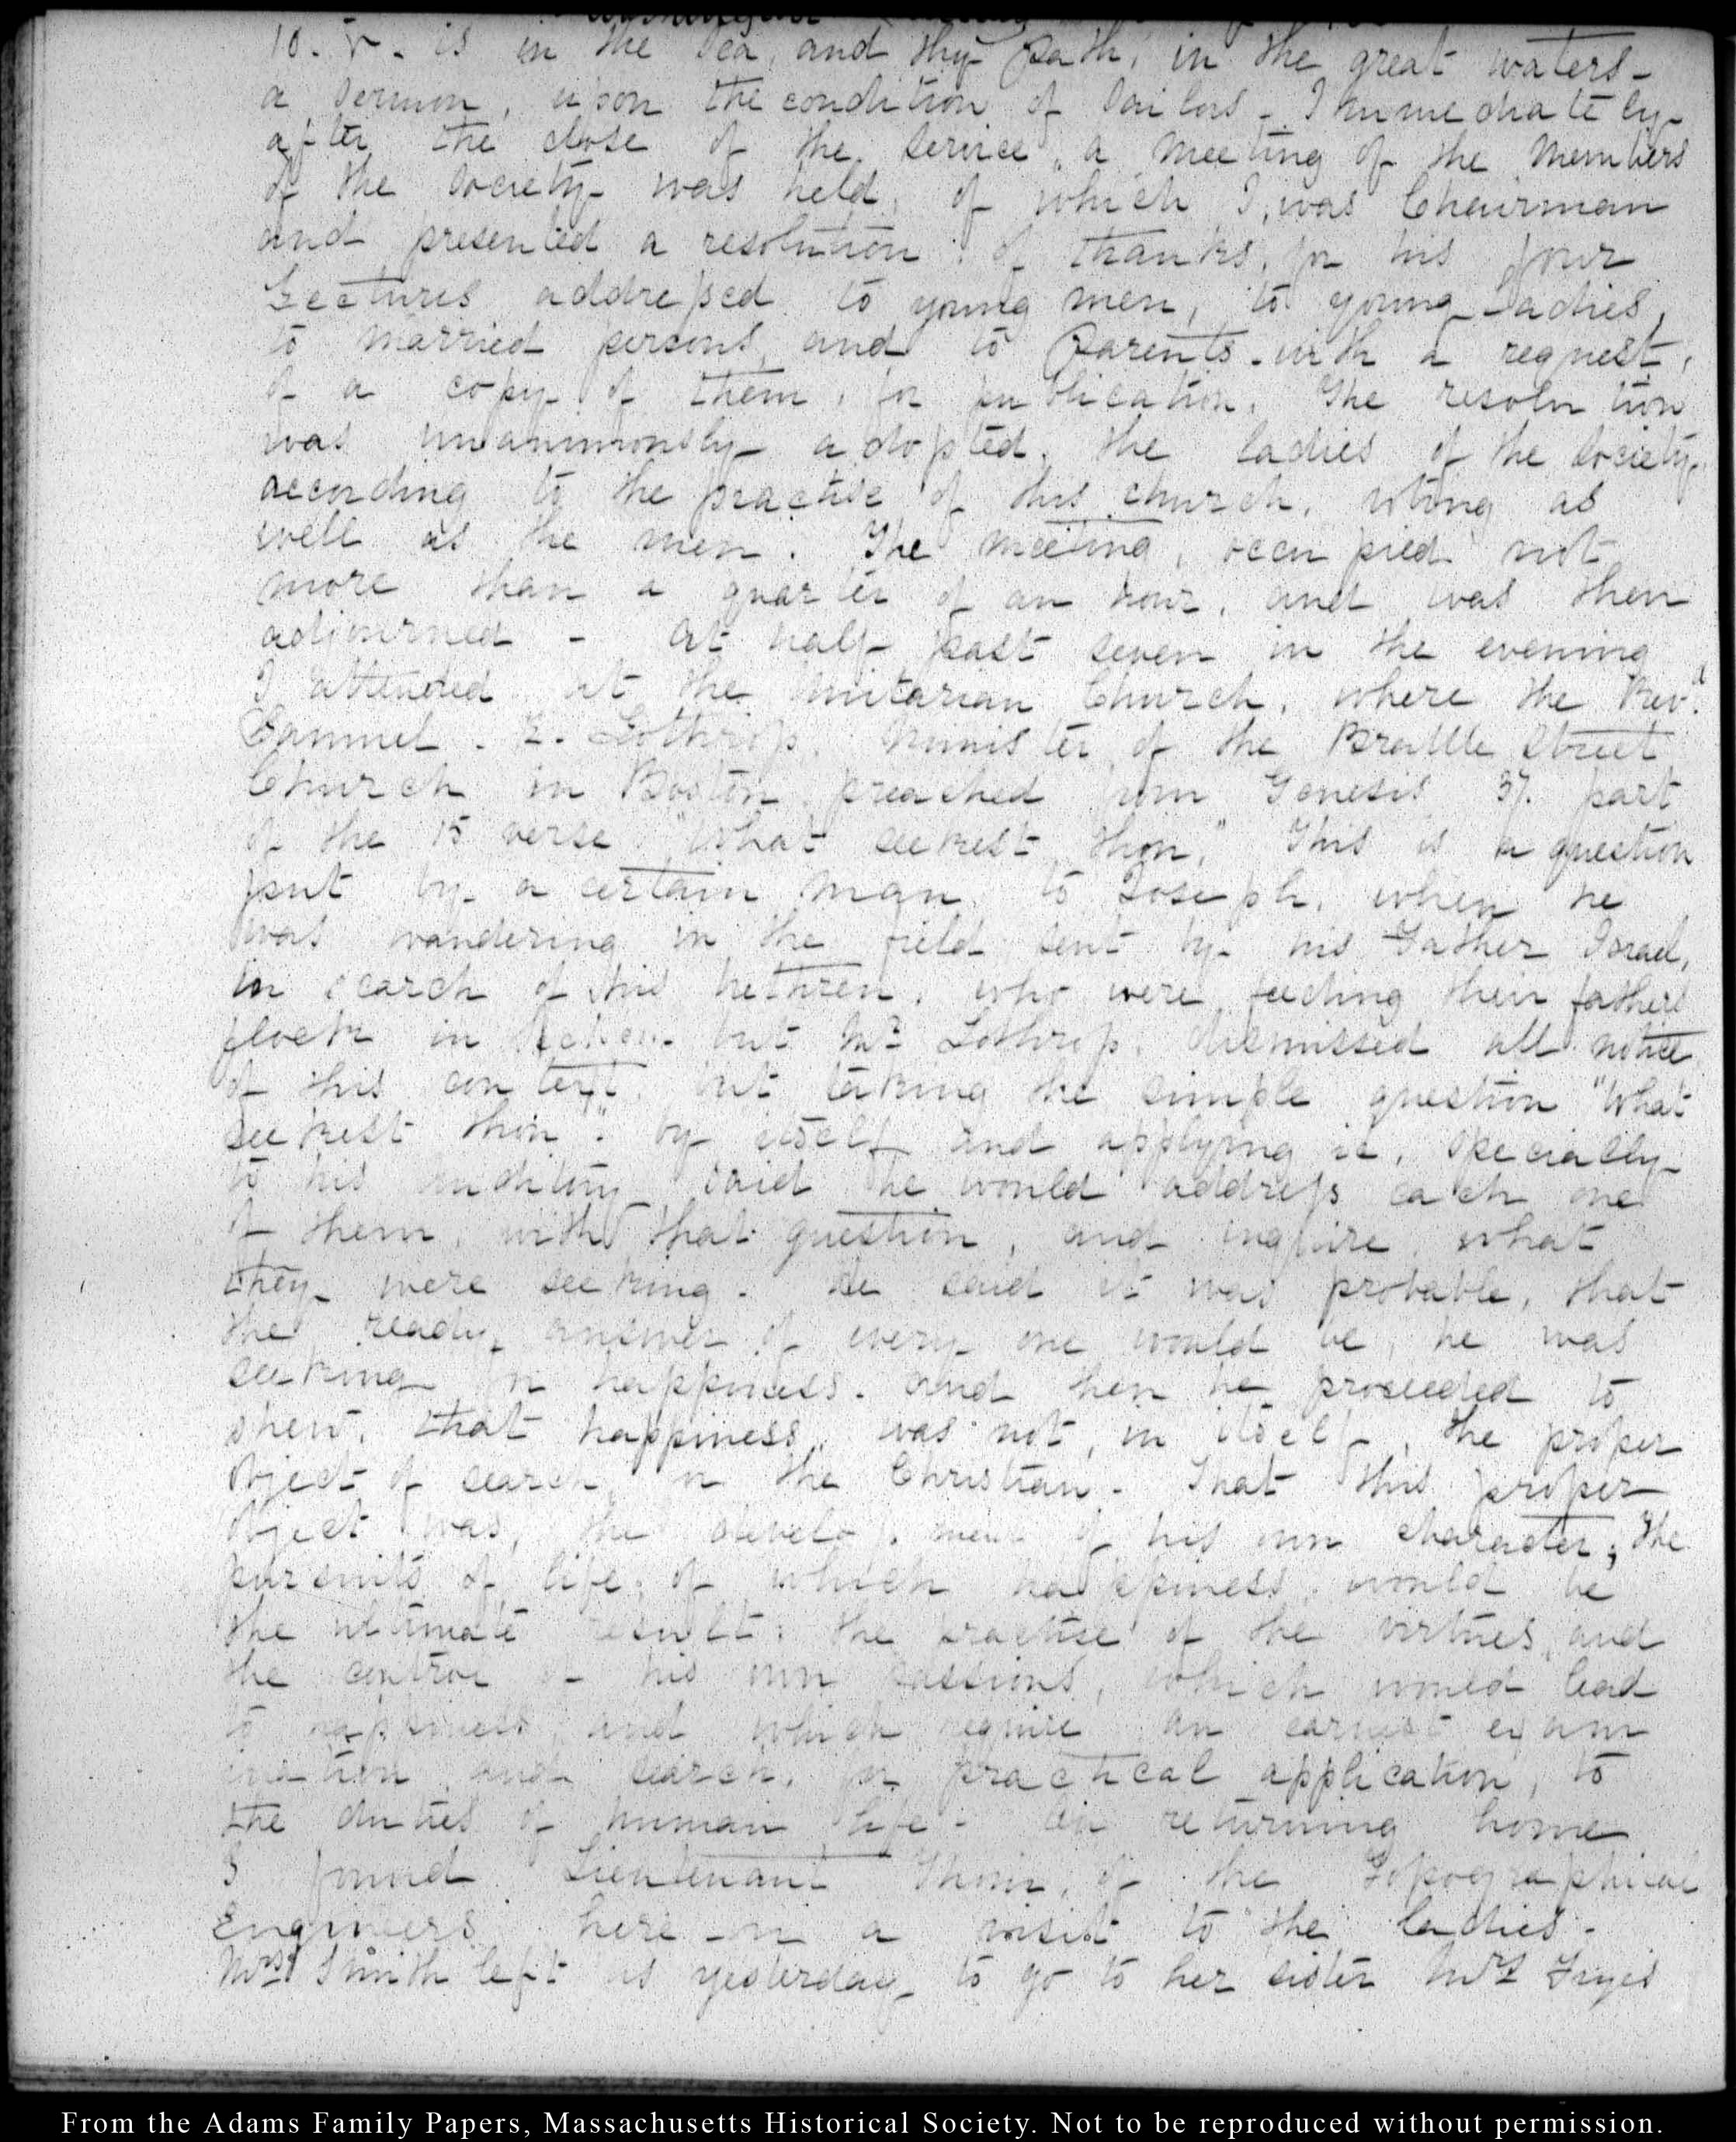 10. V. is in the Sea, and thy Path, in the great waters-
a Sermon, upon the condition of Sailors - Immediately
after the close of the service, a Meeting of the Members
of the Society was held, of which I was Chairman
and presented a resolution of thanks, for his four
Lectures addressed to young men, to young Ladies,
to married persons, and to Parents - with a request,
of a copy of them, for publication. The resolution
was unanimously adopted, the ladies of the Society
according to the practise of this church, voting as
well as the men. The meeting, occupied not
more than a quarter of an hour, and was then
adjourned - At half past seven in the evening
I attended at the Unitarian Church, where the Revd.
Samuel . K. Lothrop, Minister of the Brattle Street
Church in Boston preached from Genesis 37. part
of the 15 verse "What seekest thou," This is a question
put by a certain man to Joseph, when he
was wandering in the field sent by his Father Israel,
in search of his brethren, who were feeding their fathers
flock in but Mr Lothrop, dismissed all notice
of this context, but taking the simple question "What
seekest thou" by itself and applying it, specially
to his auditory said he would address each one
of them, with that question, and inquire, what
they were seeking - He said it was probable, that
the ready answer of every one would be, he was
seeking for happiness - and then he proceeded to
shew, that happiness, was not, in itself, the proper
object of search, to the Christian - That this proper
object was, the development of his own character; the
pursuits of life, of which happiness would be
the ultimate result: the practise of the virtues, and
the control of his own passions, which would lead
to happiness, and which require an earnest exam
ination and search, for practical application, to
the duties of human life - On returning home
I found Lieutenant Thom, of the Topographical
Engineers here on a visit to the ladies -
Mrs Smith left us yesterday to go to her sister Mrs Fryes
From the Adams Family Papers, Massachusetts Historical Society. Not to be reproduced without permission.